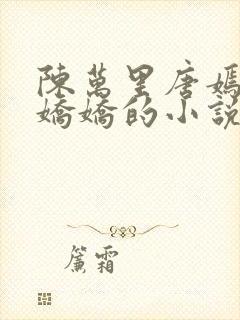 陳萬里唐嫣
嬌嬌的小說
簾霜